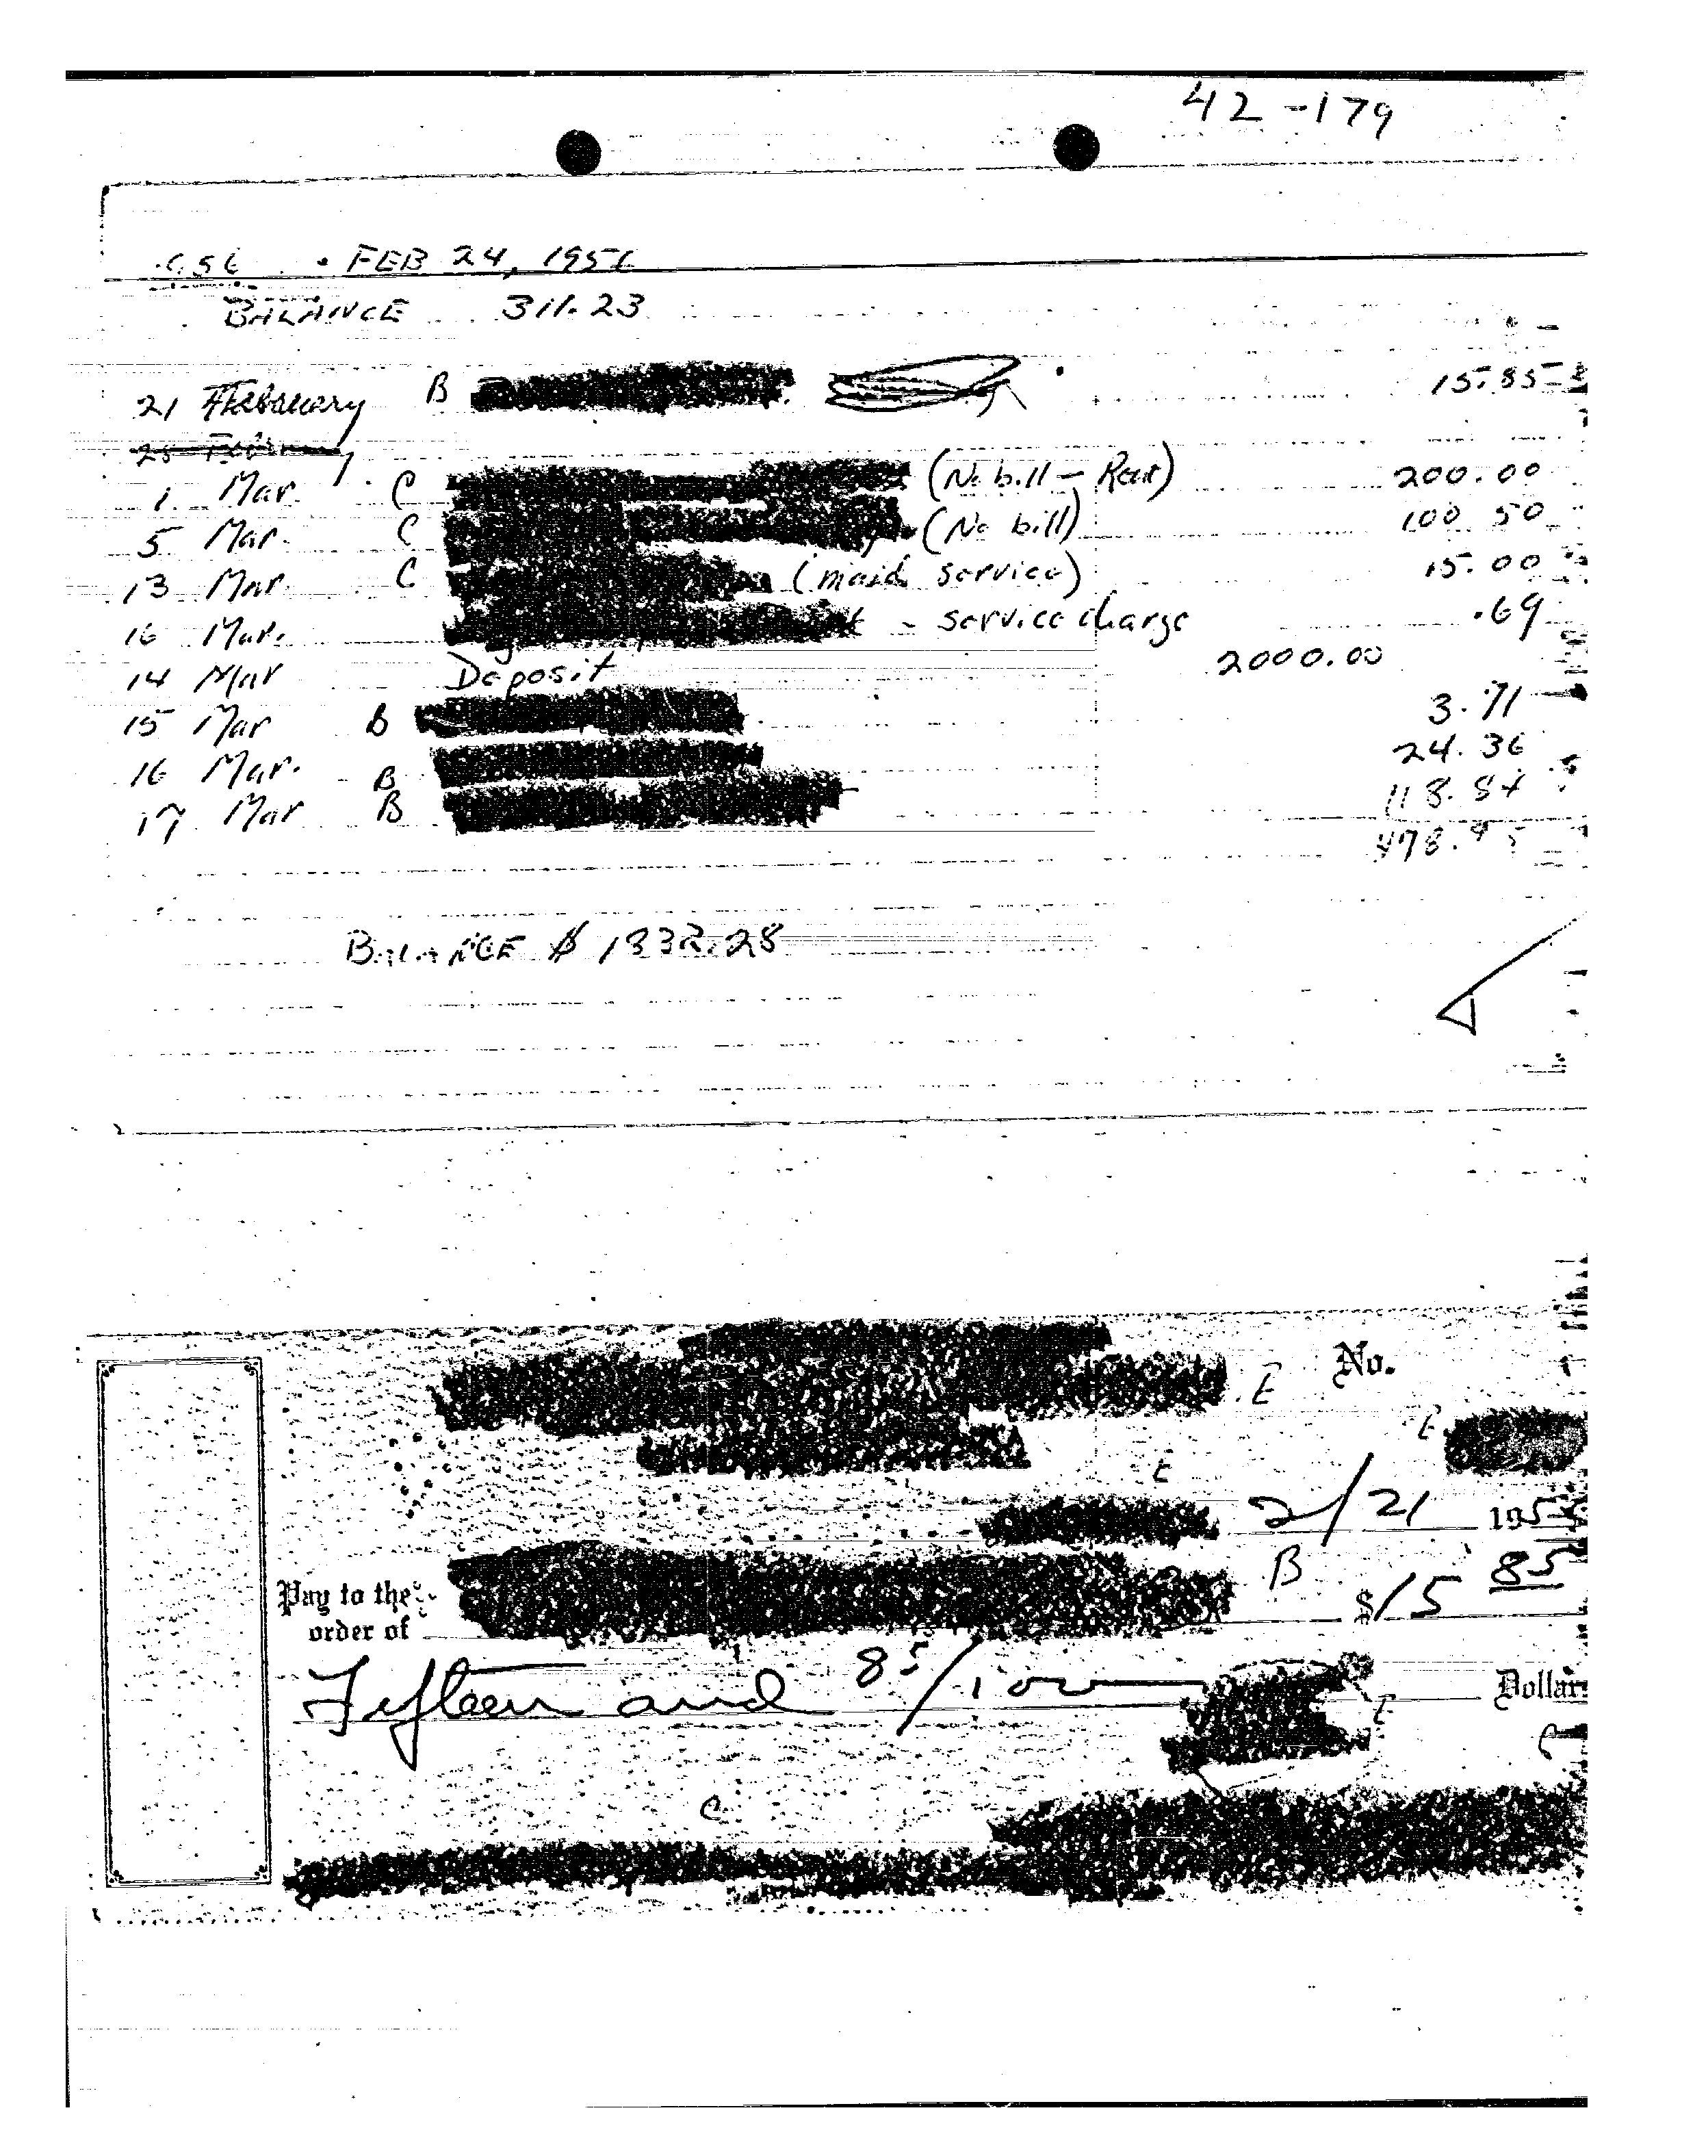 42-179
FEB 24, 1956
BALANCE 311.23
21 Febauery B 15.85
1 Mar. C (No bill - Rent) 200.00
5 Mar. C (No bill) 100 50
13 Mar. C (maid service) 15.00
16 Mar. - service charge .69
14 Mar Deposit 2000.00
15 Mar B 3.71
16 Mar. B 24.36
17 Mar B 118.84
478.95
BALANCE $ 1832.28
No.
E
E
E
2/21 195
Pay to the order of B $15 85
Fifteen and 85/100 Dollars
E
C
C